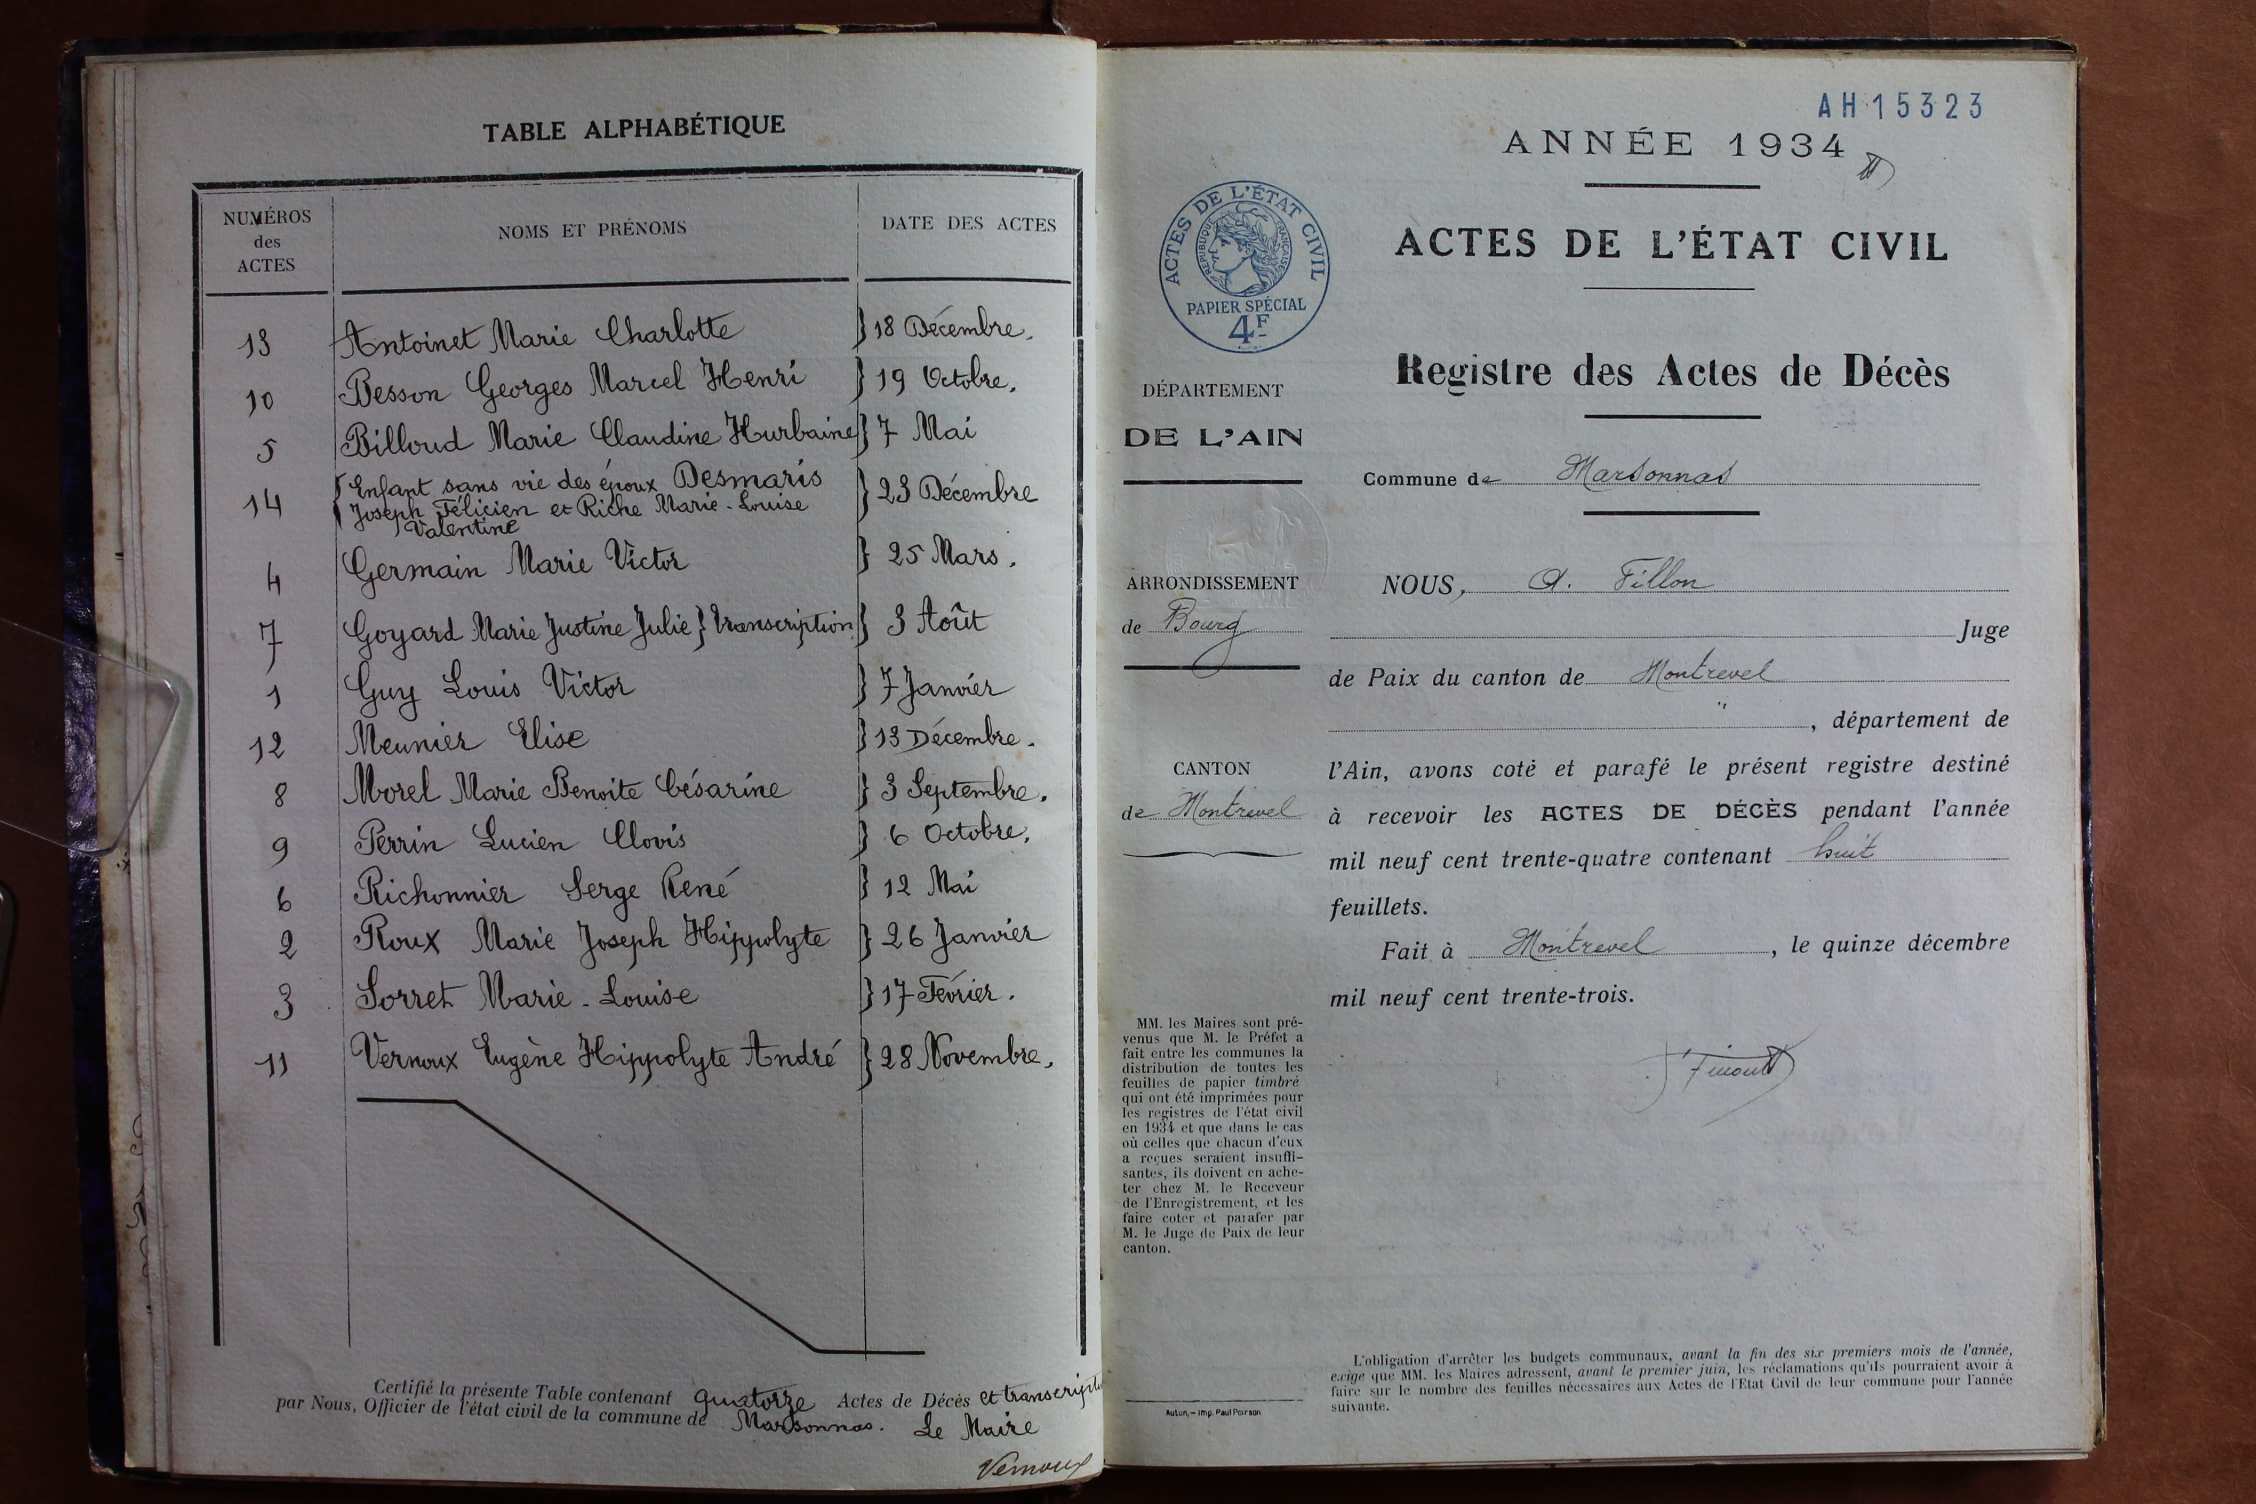 TABLE ALPHABÉTIQUE
NUMÉROS
des
ACTES
NOMS ET PRÉNOMS
DATE DES ACTES
13 Antoinet Marie Charlotte } 18 Décembre.
10 Besson Georges Marcel Henri } 19 Octobre.
5 Billoud Marie Claudine Hurbaine } 7 Mai
14 { Enfant sans vie des époux Desmaris } 23 Décembre
Joseph Félicien et Riche Marie-Louise
Valentine
4 Germain Marie Victor } 25 Mars.
7 Goyard Marie Justine Julie } transcription } 3 Août
1 Guy Louis Victor } 7 Janvier
12 Meunier Elise } 13 Décembre.
8 Morel Marie Benoite Césarine } 3 Septembre.
9 Perrin Lucien Clovis } 6 Octobre.
6 Richonnier Serge René } 12 Mai
2 Roux Marie Joseph Hippolyte } 26 Janvier
3 Sorret Marie-Louise } 17 Février.
11 Vernoux Eugène Hippolyte André } 28 Novembre.
Certifié la présente Table contenant quatorze Actes de Décès et transcripti
par Nous, Officier de l'état civil de la commune de Marsonnas. Le Maire
Vernoux
AH15323
ANNÉE 1934
ACTES DE L'ÉTAT CIVIL
RÉPUBLIQUE FRANÇAISE
PAPIER SPÉCIAL
4F
ACTES DE L'ÉTAT CIVIL
Registre des Actes de Décès
DÉPARTEMENT
DE L'AIN
Commune de Marsonnas
ARRONDISSEMENT
de Bourg
CANTON
de Montrevel
NOUS, A. Fillon
Juge
de Paix du canton de Montrevel
" , département de
l'Ain, avons coté et parafé le présent registre destiné
à recevoir les ACTES DE DÉCÈS pendant l'année
mil neuf cent trente-quatre contenant huit
feuillets.
Fait à Montrevel, le quinze décembre
mil neuf cent trente-trois.
MM. les Maires sont pré-
venus que M. le Préfet a
fait entre les communes la
distribution de toutes les
feuilles de papier timbré
qui ont été imprimées pour
les registres de l'état civil
en 1934 et que dans le cas
où celles que chacun d'eux
a reçues seraient insuffi-
santes, ils doivent en ache-
ter chez M. le Receveur
de l'Enregistrement, et les
faire coter et parafer par
M. le Juge de Paix de leur
canton.
Autun, - Imp. Paul Poirson
L'obligation d'arrêter les budgets communaux, avant la fin des six premiers mois de l'année,
exige que MM. les Maires adressent, avant le premier juin, les réclamations qu'ils pourraient avoir à
faire sur le nombre des feuilles nécessaires aux Actes de l'Etat Civil de leur commune pour l'année
suivante.